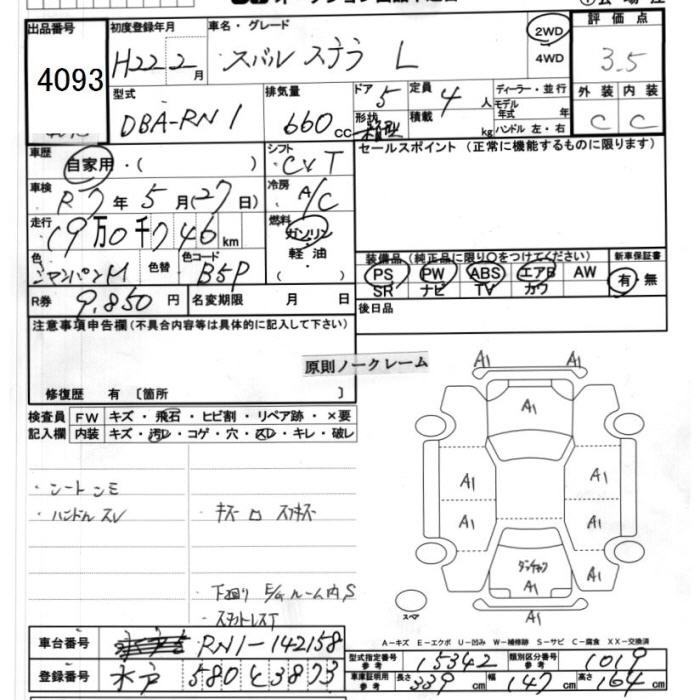 出品番号
4093
初度登録年月
H22 2月
車名・グレード
スバル ステラ L
2WD
4WD
評価点
3.5
外装 内装
C C
型式
DBA-RN1
排気量
660 cc
ドア 5
形状 箱型
定員 4 人
積載 kg
ディーラー・並行
モデル年式 年
ハンドル 左・右
車歴
自家用・( )
シフト
CVT
セールスポイント (正常に機能するものに限ります)
車検
R7年5月(27日)
冷房
A/C
走行
19万0千746km
燃料
ガソリン
軽油
( )
色
シャンパンM
色替
色コード
B5P
装備品 (純正品に限り○をつけてください)
PS PW ABS エアB AW
SR ナビ TV カワ
新車保証書
有・無
R券 9,850円
名変期限 月 日
後日品
注意事項申告欄 (不具合内容等は具体的に記入して下さい)
原則ノークレーム
修復歴 有 〔箇所 〕
検査員記入欄
FW キズ・飛石・ヒビ割・リペア跡・×要
内装 キズ・汚レ・コゲ・穴・スレ・キレ・破レ
・シートシミ
・ハンドルスレ
・下廻り E/Gルーム内S
A1 A1
A1
A1 A1
A1 A1
A1
A1
スペア
A-キズ E-エクボ U-凹み W-補修跡 S-サビ C-腐食 XX-交換済
車台番号 RN1-142158
登録番号 水戸 580 と 3873
型式指定番号 参考 15342
類別区分番号 参考 1019
車庫証明用 参考 長さ 339 cm 幅 147 cm 高さ 164 cm